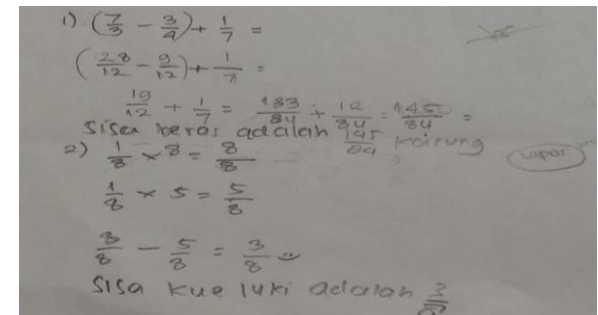 1) (7/3 - 3/4) + 1/7 =
(28/12 - 9/12) + 1/7 =
19/12 + 1/7 = 133/84 + 12/84 = 145/84 =
Sisa beras adalah 145/84 karung
2) 1/8 × 8 = 8/8
1/8 × 5 = 5/8
8/8 - 5/8 = 3/8
Sisa kue luki adalah 3/8